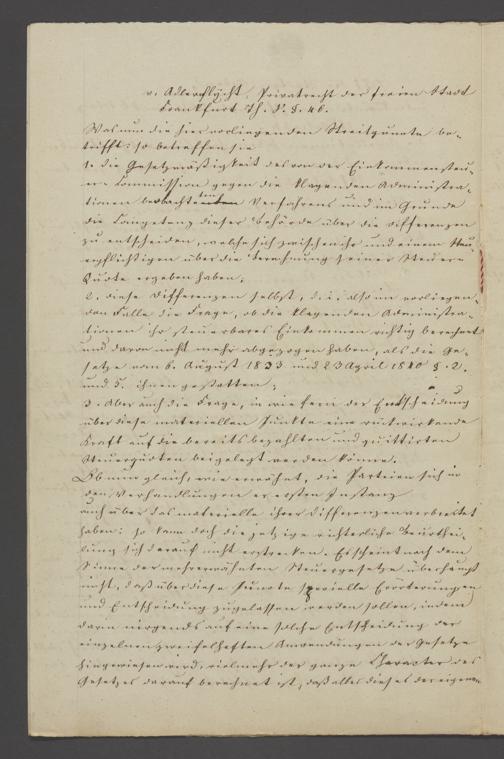 v. Adlerflycht, Privatrecht der freien Stadt
Frankfurt Th. I. §. 46.
Was nun die hier vorliegenden Streitpunkte be-
trifft: so betreffen sie
1. die Gesetzmäßigkeit des von der Einkommensteu-
er-Commission gegen die klagenden Administra-
tionen beobachteten Verfahrens und im Grunde
die Competenz dieser Behörde über die Differenzen
zu entscheiden, welche sich zwischen ihr und einem Steu-
erpflichtigen über die Berechnung seiner Steuer-
Quote ergeben haben;
2. diese Differenzen selbst, d. i. also im vorliegen-
den Falle die Frage, ob die klagenden Administra-
tionen ihr steuerbares Einkommen richtig berechnet
und davon nicht mehr abgezogen haben, als die Ge-
setze vom 6. August 1833 und 23 April 1840 §. 2.
und 5. ihnen gestatten;
3. Aber auch die Frage, in wie fern der Entscheidung
über diese materiellen Punkte eine rückwirkende
Kraft auf die bereits bezahlten und quittirten
Steuerquoten beigelegt werden könne.
Ob nun gleich, wie erwähnt, die Parteien sich in
den Verhandlungen erster Instanz
auch über das materielle ihrer Differenzen verbreitet
haben: so kann doch die jetzige richterliche Beurthei-
lung sich darauf nicht erstrecken. Es scheint nach dem
Sinne der mehrerwähnten Steuergesetze überhaupt
nicht, daß über diese Punkte specielle Erörterungen
und Entscheidung zugelassen werden sollen, indem
darin nirgends auf eine solche Entscheidung der
einzelnen zweifelhaften Anwendungen der Gesetze
hingewiesen wird, vielmehr der ganze Character des
Gesetzes darauf berechnet ist, daß alles dieses der eigenen